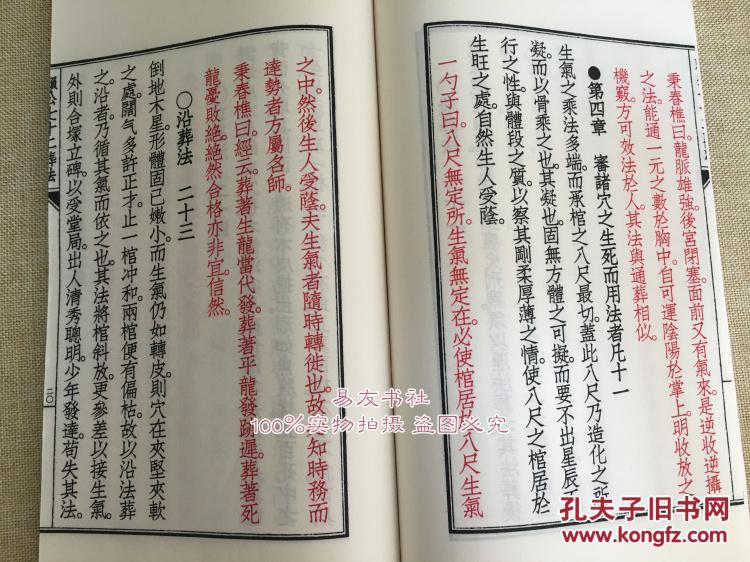 秉春樵曰。龍脈雄強。後宮閉塞。面前又有氣來。是逆收逆攝
之法。能通一元之數於胸中。自可運陰陽於掌上。明收放之
機竅。方可效法於人。其法與通葬相似。
●第四章　審諸穴之生死而用法者凡十一
生氣之乘。法多端。而承棺之八尺最切。蓋此八尺乃造化之所
凝。而以骨乘之也。其凝也。固無方體之可擬。而要不出星辰
行之性。與體段之質。以察其剛柔厚薄之情。使八尺之棺居於
生旺之處。自然生人受蔭。
一勺子曰。八尺無定所。生氣無定在。必使棺居於八尺生氣
之中。然後生人受蔭。夫生氣者隨時轉徙也。故知時務而
達勢者方屬名師。
秉春樵曰。經云。葬著生龍當代發。葬著平龍發跡遲。葬著死
龍憂敗絕。絕然合格亦非宜。信然。
○沿葬法　二十三
倒地木星。形體固已嫩小。而生氣仍如轉皮。則穴在夾堅夾軟
之處。闊气多許。正才止一棺沖和。兩棺便有偏枯。故以沿法葬
之。沿者乃循其氣而依之也。其法將棺斜放。更參差以接生氣。
外則合塚立碑。以受堂局。出人清秀聰明。少年發達。苟失其法。
二〇
易友书社
100%实物拍摄 盗图必究
孔夫子旧书网
KONGFZ.COM